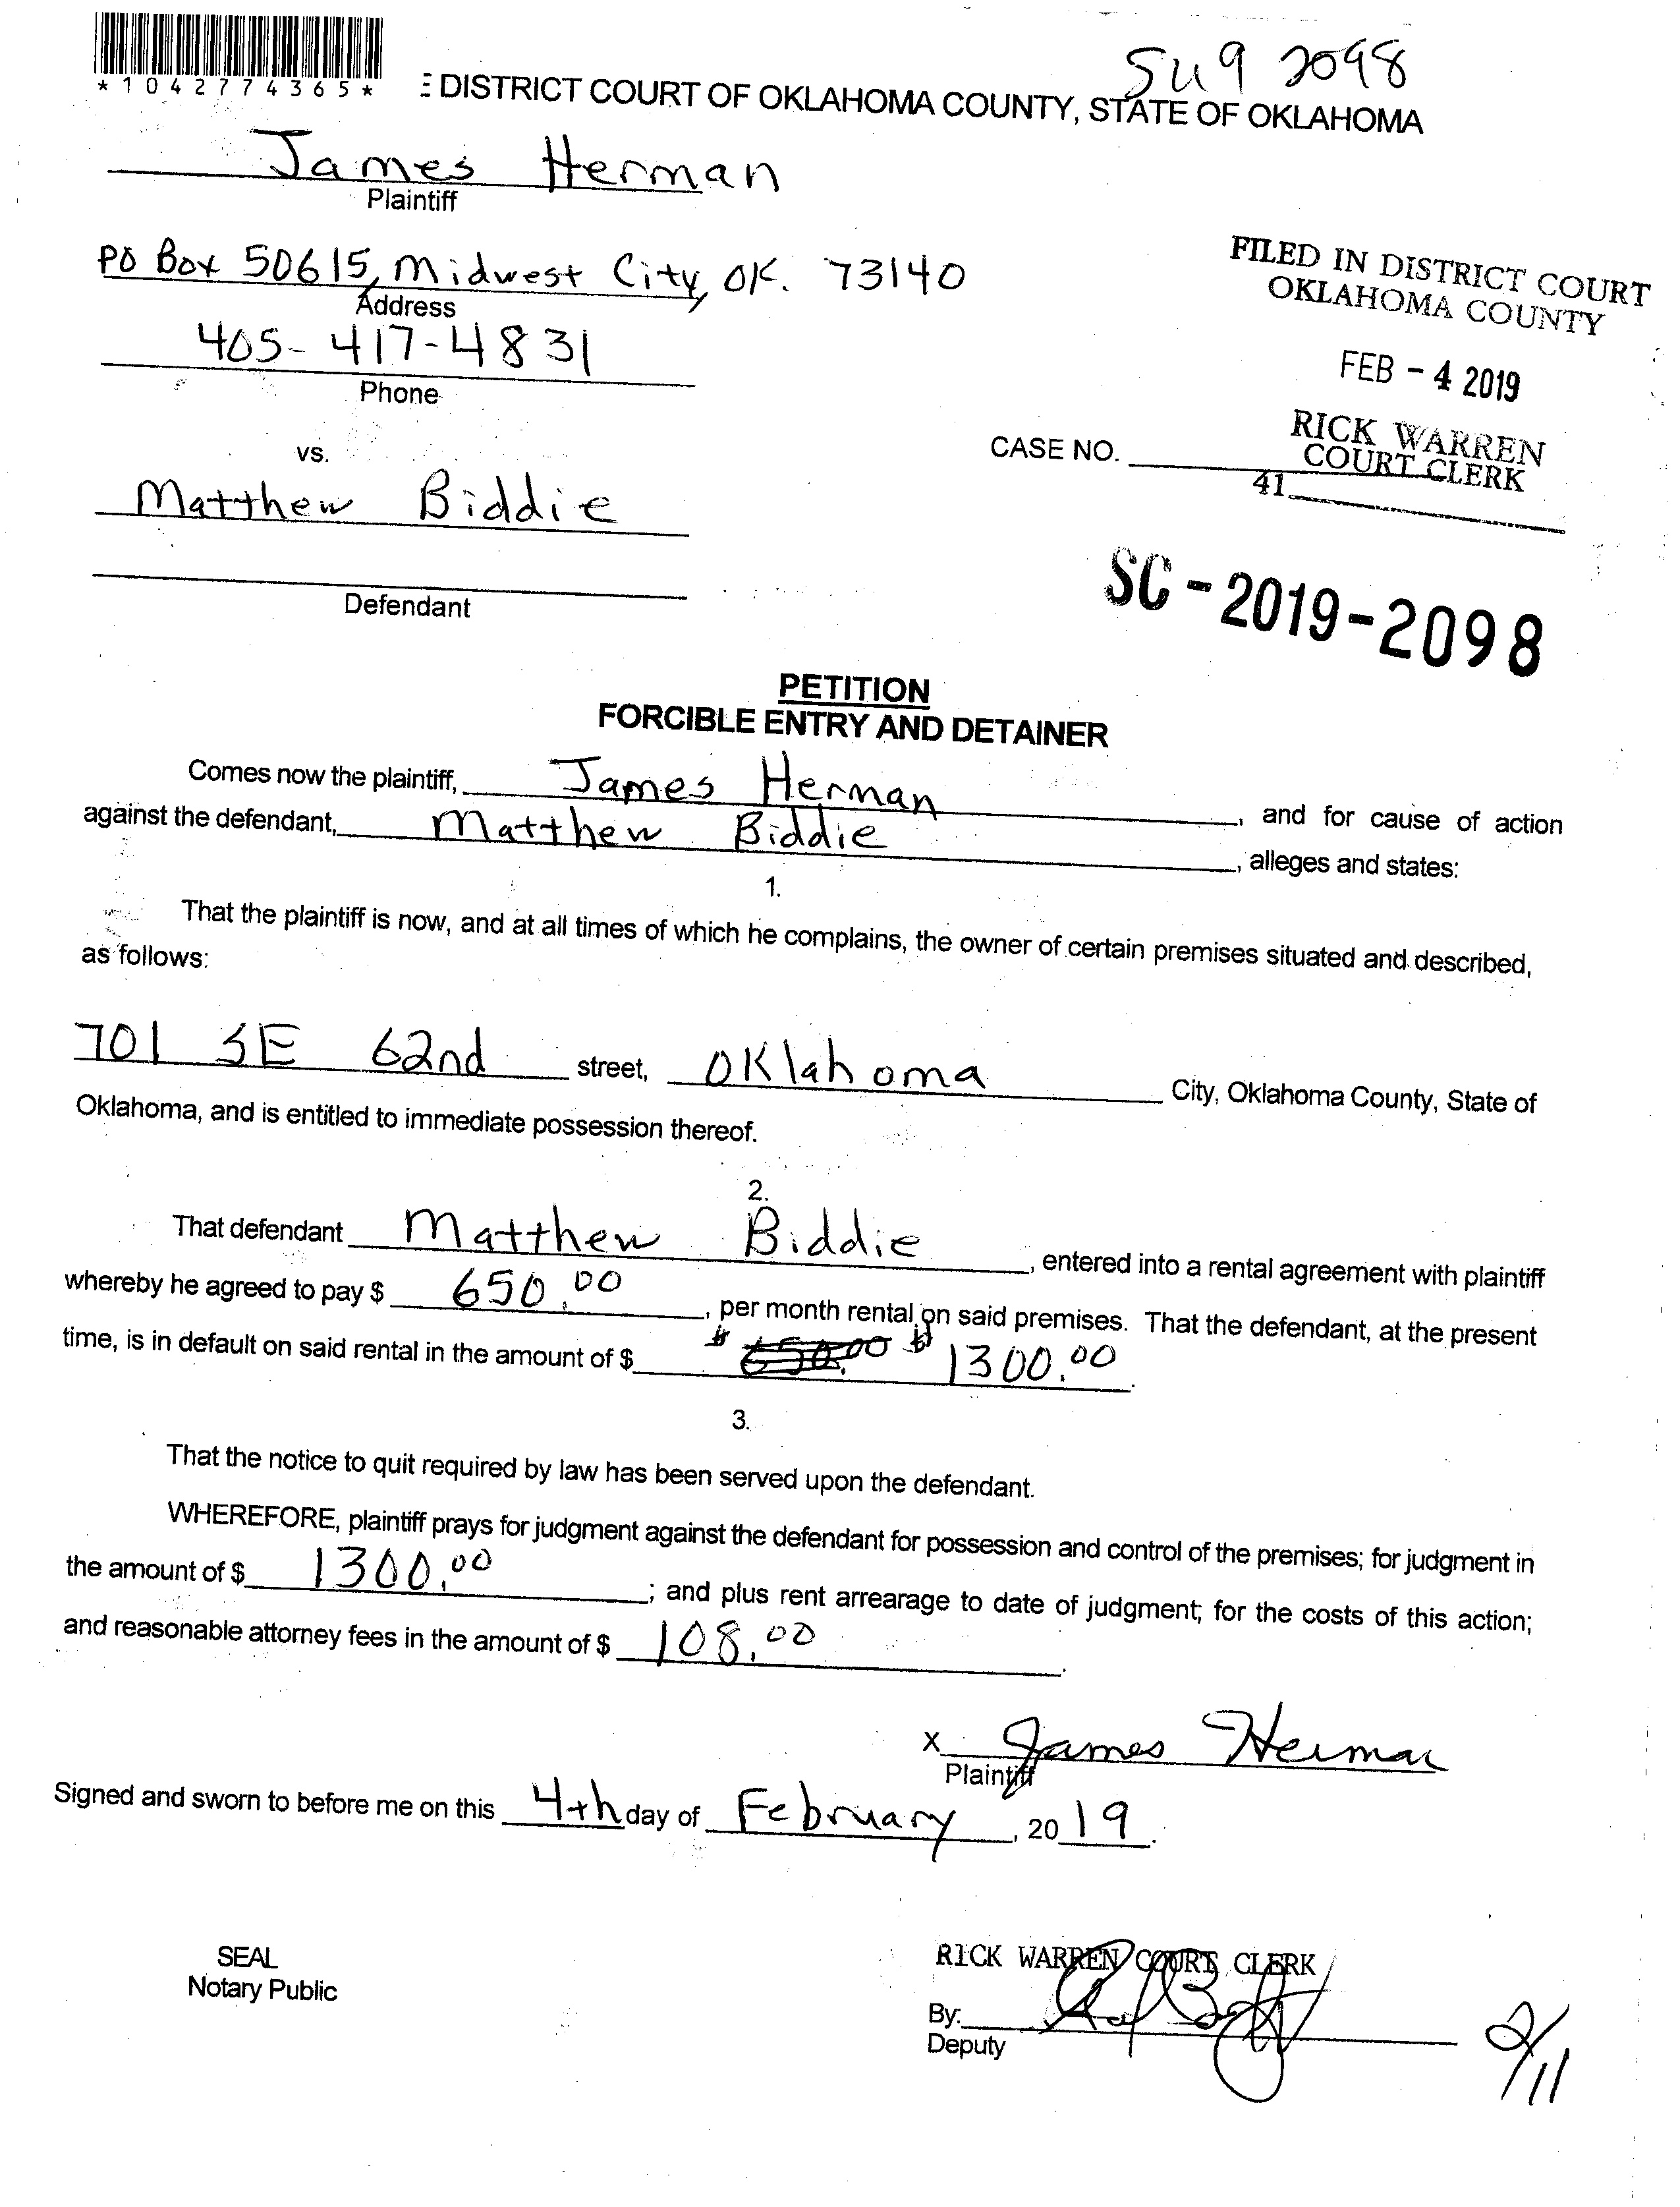 *1042774365*
SU 9 2098
E DISTRICT COURT OF OKLAHOMA COUNTY, STATE OF OKLAHOMA
James Herman
Plaintiff
PO Box 50615, Midwest City, OK. 73140
Address
FILED IN DISTRICT COURT
OKLAHOMA COUNTY
405-417-4831
Phone
FEB - 4 2019
vs.
CASE NO.
RICK WARREN
COURT CLERK
41
Matthew Biddie
Defendant
SC-2019-2098
PETITION
FORCIBLE ENTRY AND DETAINER
Comes now the plaintiff, James Herman, and for cause of action
against the defendant, Matthew Biddie, alleges and states:
1.
That the plaintiff is now, and at all times of which he complains, the owner of certain premises situated and described,
as follows:
701 SE 62nd street, Oklahoma City, Oklahoma County, State of
Oklahoma, and is entitled to immediate possession thereof.
2.
That defendant Matthew Biddie, entered into a rental agreement with plaintiff
whereby he agreed to pay $ 650.00, per month rental on said premises. That the defendant, at the present
time, is in default on said rental in the amount of $ $ 650.00 $ 1300.00.
3.
That the notice to quit required by law has been served upon the defendant.
WHEREFORE, plaintiff prays for judgment against the defendant for possession and control of the premises; for judgment in
the amount of $ 1300.00; and plus rent arrearage to date of judgment; for the costs of this action;
and reasonable attorney fees in the amount of $ 108.00.
X James Herman
Plaintiff
Signed and sworn to before me on this 4th day of February, 2019.
SEAL
Notary Public
RICK WARREN COURT CLERK
By:
Deputy
2/11